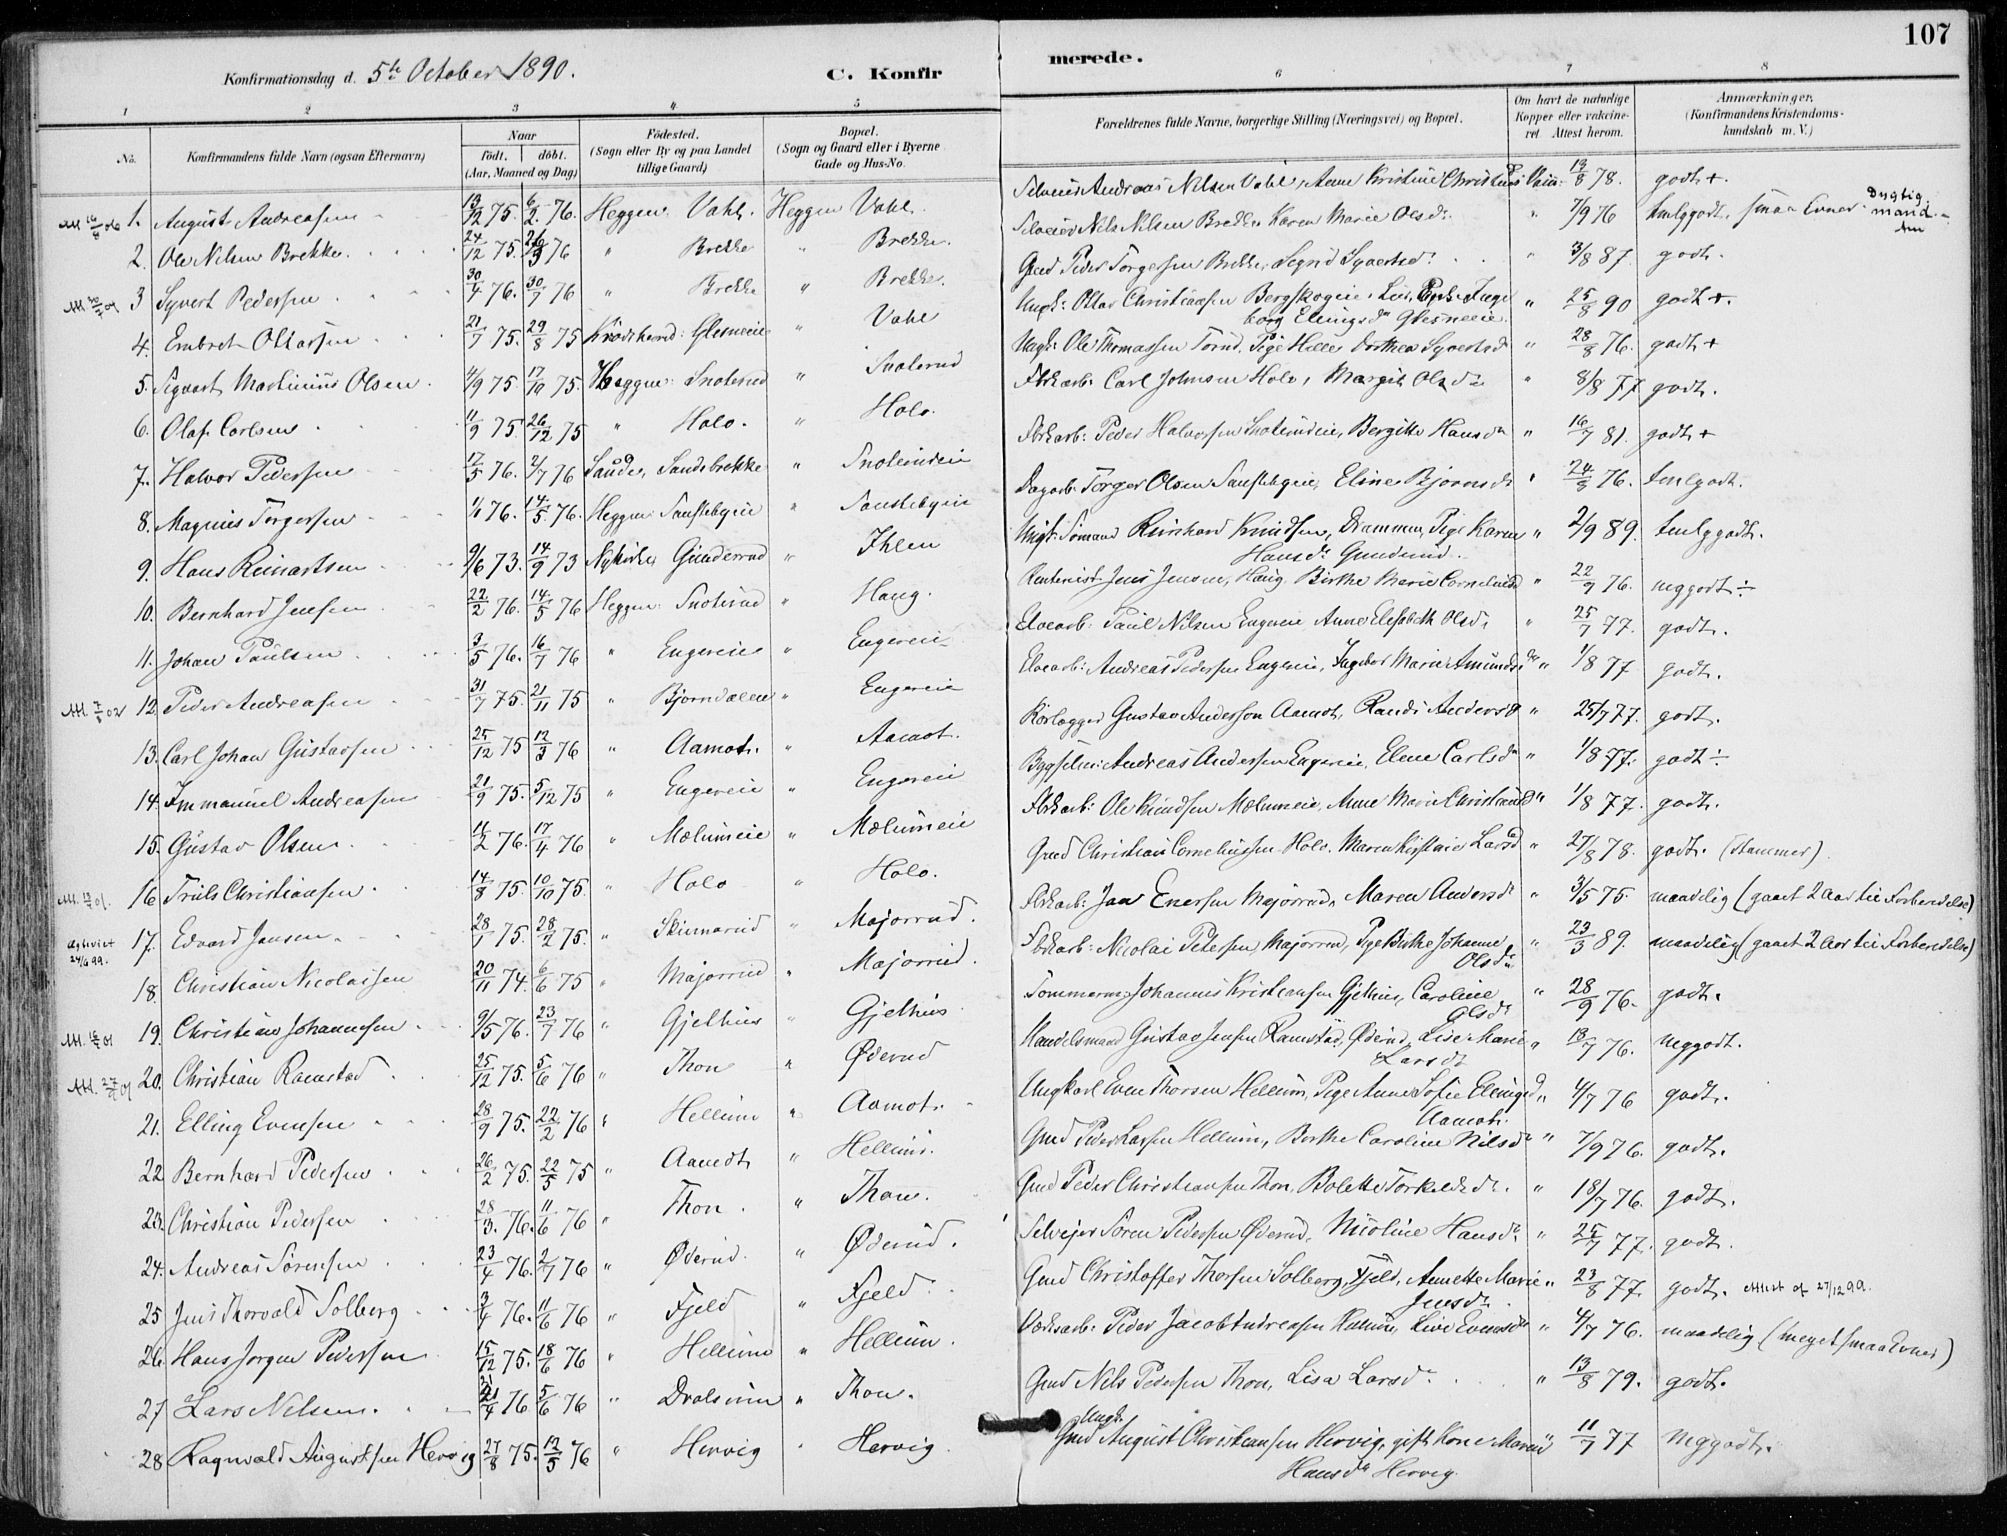 107
Konfirmationsdag d. 5te October 1890.
C. Konfirmerede.
1 2 3 4 5 6 7 8
No. Konfirmandens fulde Navn (ogsaa Efternavn) Naar födt. döbt. (Aar, Maaned og Dag) Födested. (Sogn eller By og paa Landet tillige Gaard) Bopæl. (Sogn og Gaard eller i Byerne Gade og Hus-No. Forældrenes fulde Navne, borgerlige Stilling (Næringsvei) og Bopæl. Om havt de naturlige Kopper eller vakcineret. Attest herom. Anmærkninger. (Konfirmandens Kristendomskundskab m. V.)
1. August Andreasen 13/12 75. 6/2. 76. Heggen Vahl. Heggen Vahl. Selveier Andreas Nilsen Vahl, Anne Kristine Vacc: 13/8 78. godt +.
2. Ole Nilsen Brekke 24/12 75. 26/3 76 " Brekke " Brekke. Selveier Nils Nilsen Brekke Karen Marie Olsdr. " 7/9 76 smaa Evner. Dygtig mand
3 Syvert Pedersen 30/4 76. 30/7 76 " Brekke " Brekke. Gmd Peder Torgersen Brekke, Sigrid Syvertsdr. " 3/8 87. godt.
4. Embret Ottarsen 21/7 75. 29/8 75 Krødsherred: Glesneeie " Vahl Ungk: Ottar Christiansen Bergskogeie, Pige Ingeborg Elingsdr Glesneeie. " 25/8 90 godt +.
5. Sigvart Martinius Olsen. 4/9 75. 17/10 75. Heggen: Snolerud " Snolerud Ungk: Ole Thomassen Pige Helle Dorthea Syvertsdr " 28/8 76. godt +
6. Olaf Carlsen 11/9 75 26/12 75 " Holo. " Holo. Carl Johnsen Holo, Margit Olsdr " 8/8 77 godt.
7. Halvor Pedersen 17/5 76. 2/7 76 Sande, Sandsbrekke " Peder Halvorsen Bergitte Hansdr " 16/7 81. godt +
8. Magnus Torgersen 1/1 76. 14/5 76. Heggen: " Torger Olsen Eline Bjørnsdr " 24/8 76. temlgodt.
9. Hans Reinartsen 9/6 73. 14/9 73 Nykirke, Gunderud " Ihlen Ungk: Sømand Reinhard Knudsen, Drammen, Pige Karen Hansdr " 2/9 89. temlggodt.
10. Bernhard Jensen 22/2 76. 14/5 76 Heggen: Snolerud " Haug. Jens Jensen, Haug, Birthe Marie " 22/9 76. meggodt ÷
11. Johan Paulsen 3/5 76. 16/7 76 " Engereie " Engereie Paul Nilsen Engereie Anne Elisabeth Olsdr " 25/7 77. godt.
12. Peder Andreasen 31/7 75. 21/11 75 " Bjørndalen " Engereie Andreas Pedersen Engereie, Ingebor Marie Amundsdr " 1/8 77 godt.
13. Carl Johan Gustavsen 25/12 75 12/3 76 " Aamot. " Aamot. Gustav Anderson Aamot, Randi Andersdr " 25/7 77. godt.
14. Immanuel Andreasen 21/9 75. 5/12 75 " Engereie " Engereie Andreas Andersen Engereie, Elene Carlsdr " 1/8 77. godt ÷
15. Gustav Olsen 11/2 76. 17/4 76 " Mælumeie " Mælumeie Ole Knudsen Mælumeie, Anne Marie " 1/8 77. godt.
16 Truls Christiansen 14/8 75. 10/10 75. " Holo " Holo. Gmd Christian Corneliussen Holo, Maren Larsd " 27/8 78. godt. (Stammer).
17. Edvard Jansen 28/1 75. 28/2 75. " Skinnarud " Majorrud. Jan Enersen Majorrud, Maren Andersdr " 3/5 75. maadelig (gaaet 2 Aar til Forberedelse)
18 Christian Nicolaisen 20/11 74. 6/6 75 " Majorrud " Majorrud. Nicolai Majorrud, Pige Birthe Johanne Olsdr " 23/3 89. maadelig (gaaet 2 Aar til Forberedelse)
19. Christian Johannesen 9/5 76. 23/7 76 " Gjelhus " Gjelhus Tømmerm: Johannes Kristiansen Gjelhus, Caroline Olsdr " 28/9 76. godt.
20. Christian Ramstad 25/12 75. 5/6 76 " Thon " Øderud Handelsmand Gustav Jensen Ramstad, Øderud, Lise Marie Larsdr " 13/7 76. meggodt.
21. Elling Evensen 28/9 75. 22/2 76 " Hellum " Aamot. Ungkarl Even Thorsen Hellum, Pige Anne Sofie Ellingsd Aamot. " 4/7 76 godt.
22 Bernhard Pedersen 26/2 75. 22/5 75 " Aamodt " Hellum. Gmd Peder Larsen Hellum, Berthe Caroline Nilsdr " 7/9 76. godt.
23. Christian Pedersen 28/3. 76. 11/6 76 " Thon. " Thon. Gmd Peder Christiansen Thon, Bolette Torkildsdr. " 18/7 76. godt.
24. Andreas Sørensen 23/4 76. 2/7 76 " Øderud. " Øderud. Selvejer Søren Pedersen Øderud, Nicoline Hansdr " 25/7 77. godt.
25 Jens Thorvald Solberg 76. 11/6 76 " Fjeld " Fjeld. Gmd Christoffer Thorsen Solberg, Fjeld, Annette Marie Jensdr. " 23/8 77. godt. Attest af 27/12 99.
26. Hans Jørgen Pedersen 15/12 75. 18/6 76 " Hellum " Hellum. Peder Jacob Andreasen Hellum, Live Evensdr " 4/7 76. maadelig (meget smaa Evner)
27 Lars Nilsen. 76 5/6 76 " Dralsrum " Thon. Gmd Nils Pedersen Thon, Lisa Larsdr. " 13/8 79. godt.
28 Ragnvald Augustsen Hervig 27/8 75. 12/3 76 " Hervig " Hervig Ungk. August Christiansen Hervig, gift Kone Maren Hansdr Hervig. " 11/7 77 meggodt.